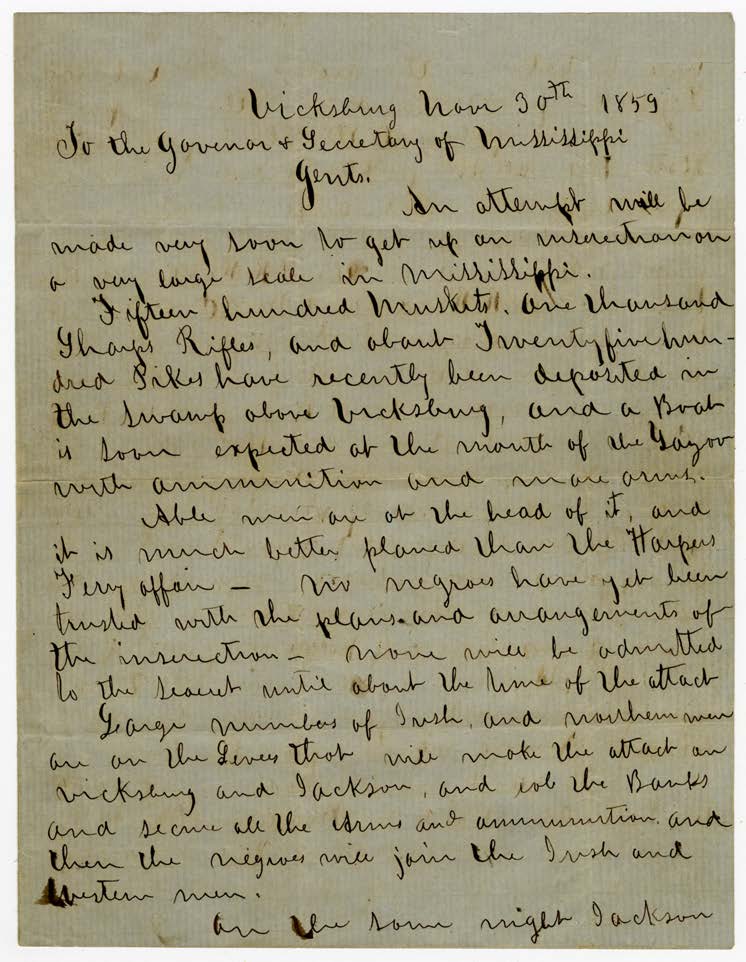 Vicksburg Novr 30th 1859
To the Govenor & Secretary of Mississippi
Gents.
An attempt will be
made very soon to get up an inserection on
a very large scale in Mississippi.
Fifteen hundred Muskets. One thousand
Sharps Rifles, and about Twentyfive hun-
dred Pikes have recently been deposited in
the swamp above Vicksburg, and a Boat
is soon expected at the mouth of the Yazoo
with ammunition and more arms.
Able men are at the head of it, and
it is much better planed than the Harpers
Ferry affair — No negroes have yet been
trusted with the plans and arrangements of
the inserection — None will be admitted
to the secret until about the time of the attact
Large numbers of Irish, and northern men
are on the Levees that will make the attact on
Vicksburg and Jackson, and rob the Banks
and secure all the Arms and ammunition and
then the negroes will join the Irish and
Western men.
On the same night Jackson